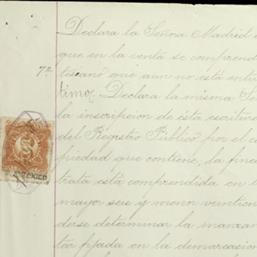 Declara la Señora Madrid
que en la venta se comprend
72
que aun no está
timo: Declara la misma Se
la inscripcion de esta escritur
del Registro Público por el c
piedad que contiene, la finc
trata está comprendida en e
mayor seis y menor veintiun
derse determinar la manzan
tar fijada en la demarcacion
MEXICO